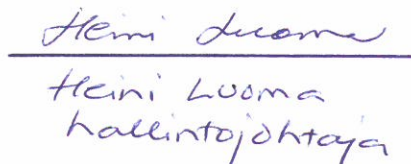 Heini Luoma
Heini Luoma
hallintojohtaja